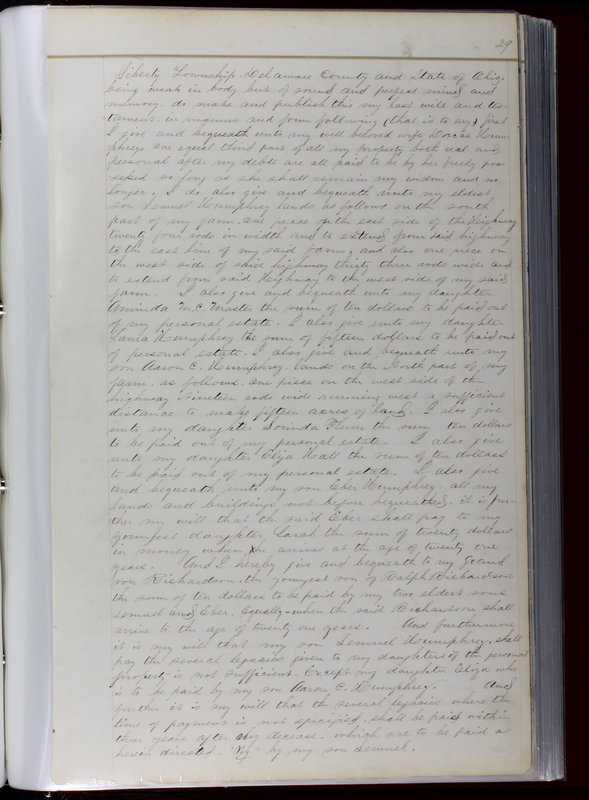 29
Liberty Township, Delaware County and State of Ohio,
being weak in body but of sound and perfect mind and
memory. do make and publish this my last will and tes-
tament. in manner and form following (that is to say) first
I give and bequeath unto my well beloved wife Humph-
phreys one equal third part of all my property both real and
personal after my debts are all paid to be by her freely pos-
sesed so long as she shall remain my widow and no
longer. I do also give and bequeath unto my eldest
son Lemuel Humphrey lands as follows on the south
part of my farm. one peace on the east side of the Highway
twenty four rods in width and to extend from said highway
to the east line of my said farm; and also one piece on
the west side of said highway thirty three rods wide and
to extend from said Highway to the west side of my said
farm. I also give and bequeath unto my daughter
M. C. the sum of ten dollars to be paid out
of my personal estate. I also give unto my daughter
Humphrey the sum of fifteen dollars to be paid out
of personal estate. I also give and bequeath unto my
son Aaron C. Humphrey. Lands on the North part of my
farm. as follows. one piece on the west side of the
highway Nineteen rods wide running west a sufficient
distance to make fifteen acres of land. I also give
unto my daughter the sum ten dollars
to be paid out of my personal estate. I also give
unto my daughter Eliza Hall the sum of ten dollars
to be paid out of my personal estate. I also give
and bequeath unto my son Eber Humphrey. all my
lands and buildings not before bequeathed. it is fur-
ther my will that the said Eber shall pay to my
youngest daughter Sarah the sum of twenty dollars
in money when she arrives at the age of twenty one
years. And I hereby give and bequeath to my Grand
son Richardson, the youngest son of Ralph Richardson
the sum of ten dollars to be paid by my two eldest sons
Lemuel and Eber. Equally - when the said Richardson shall
arrive to the age of twenty one years. And furthermore
it is my will that my son Lemuel Humphrey. shall
pay the several legasies given to my daughters if the personal
property is not sufficient. Except my daughter Eliza who
is to be paid by my son Aaron C. Humphrey. And
further it is my will that the several legasies where the
time of payment is not specified shall be paid within
three years after my decease. which are to be paid as
herein directed. "Viz" by my son Lemuel.